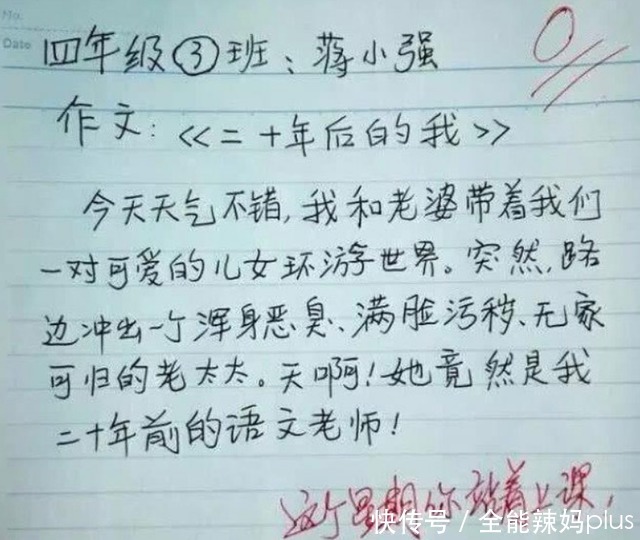 No.
Date
四年级③班：蒋小强
0
作文：<<二十年后的我>>
今天天气不错，我和老婆带着我们
一对可爱的儿女环游世界。突然，路
边冲出一个浑身恶臭、满脸污秽、无家
可归的老太太。天啊！她竟然是我
二十年前的语文老师！
这个星期你站着上课，
快传号 / 全能辣妈plus